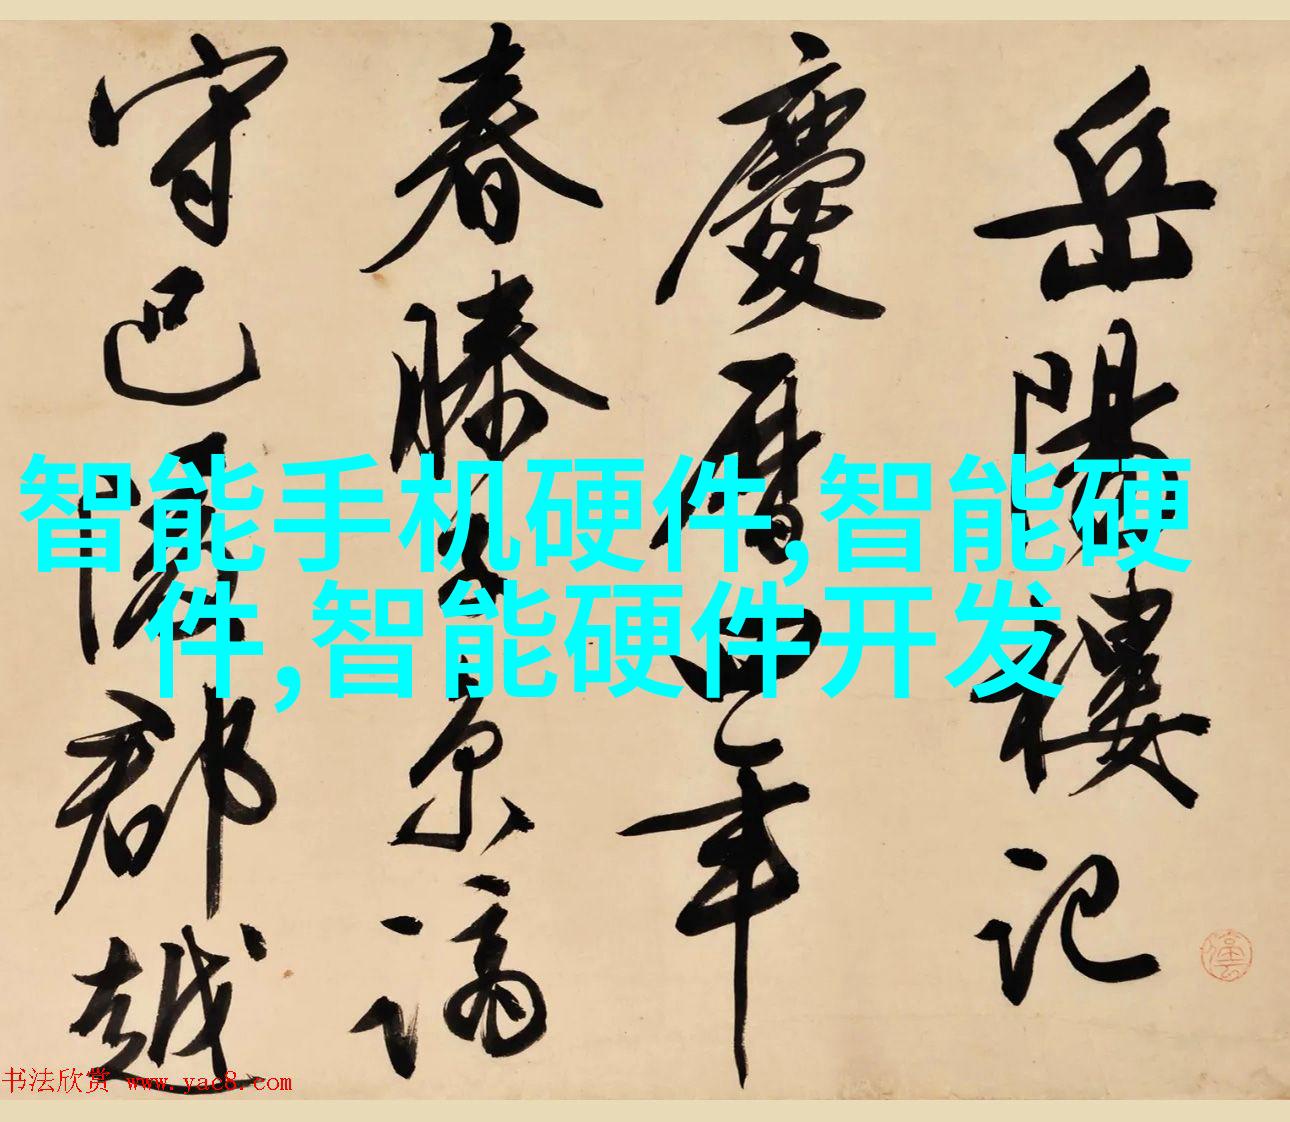 岳陽樓記
慶曆四年
春滕子京謫
守巴陵郡越
智能手机硬件,智能硬
件,智能硬件开发
书法欣赏 www.yac8.com